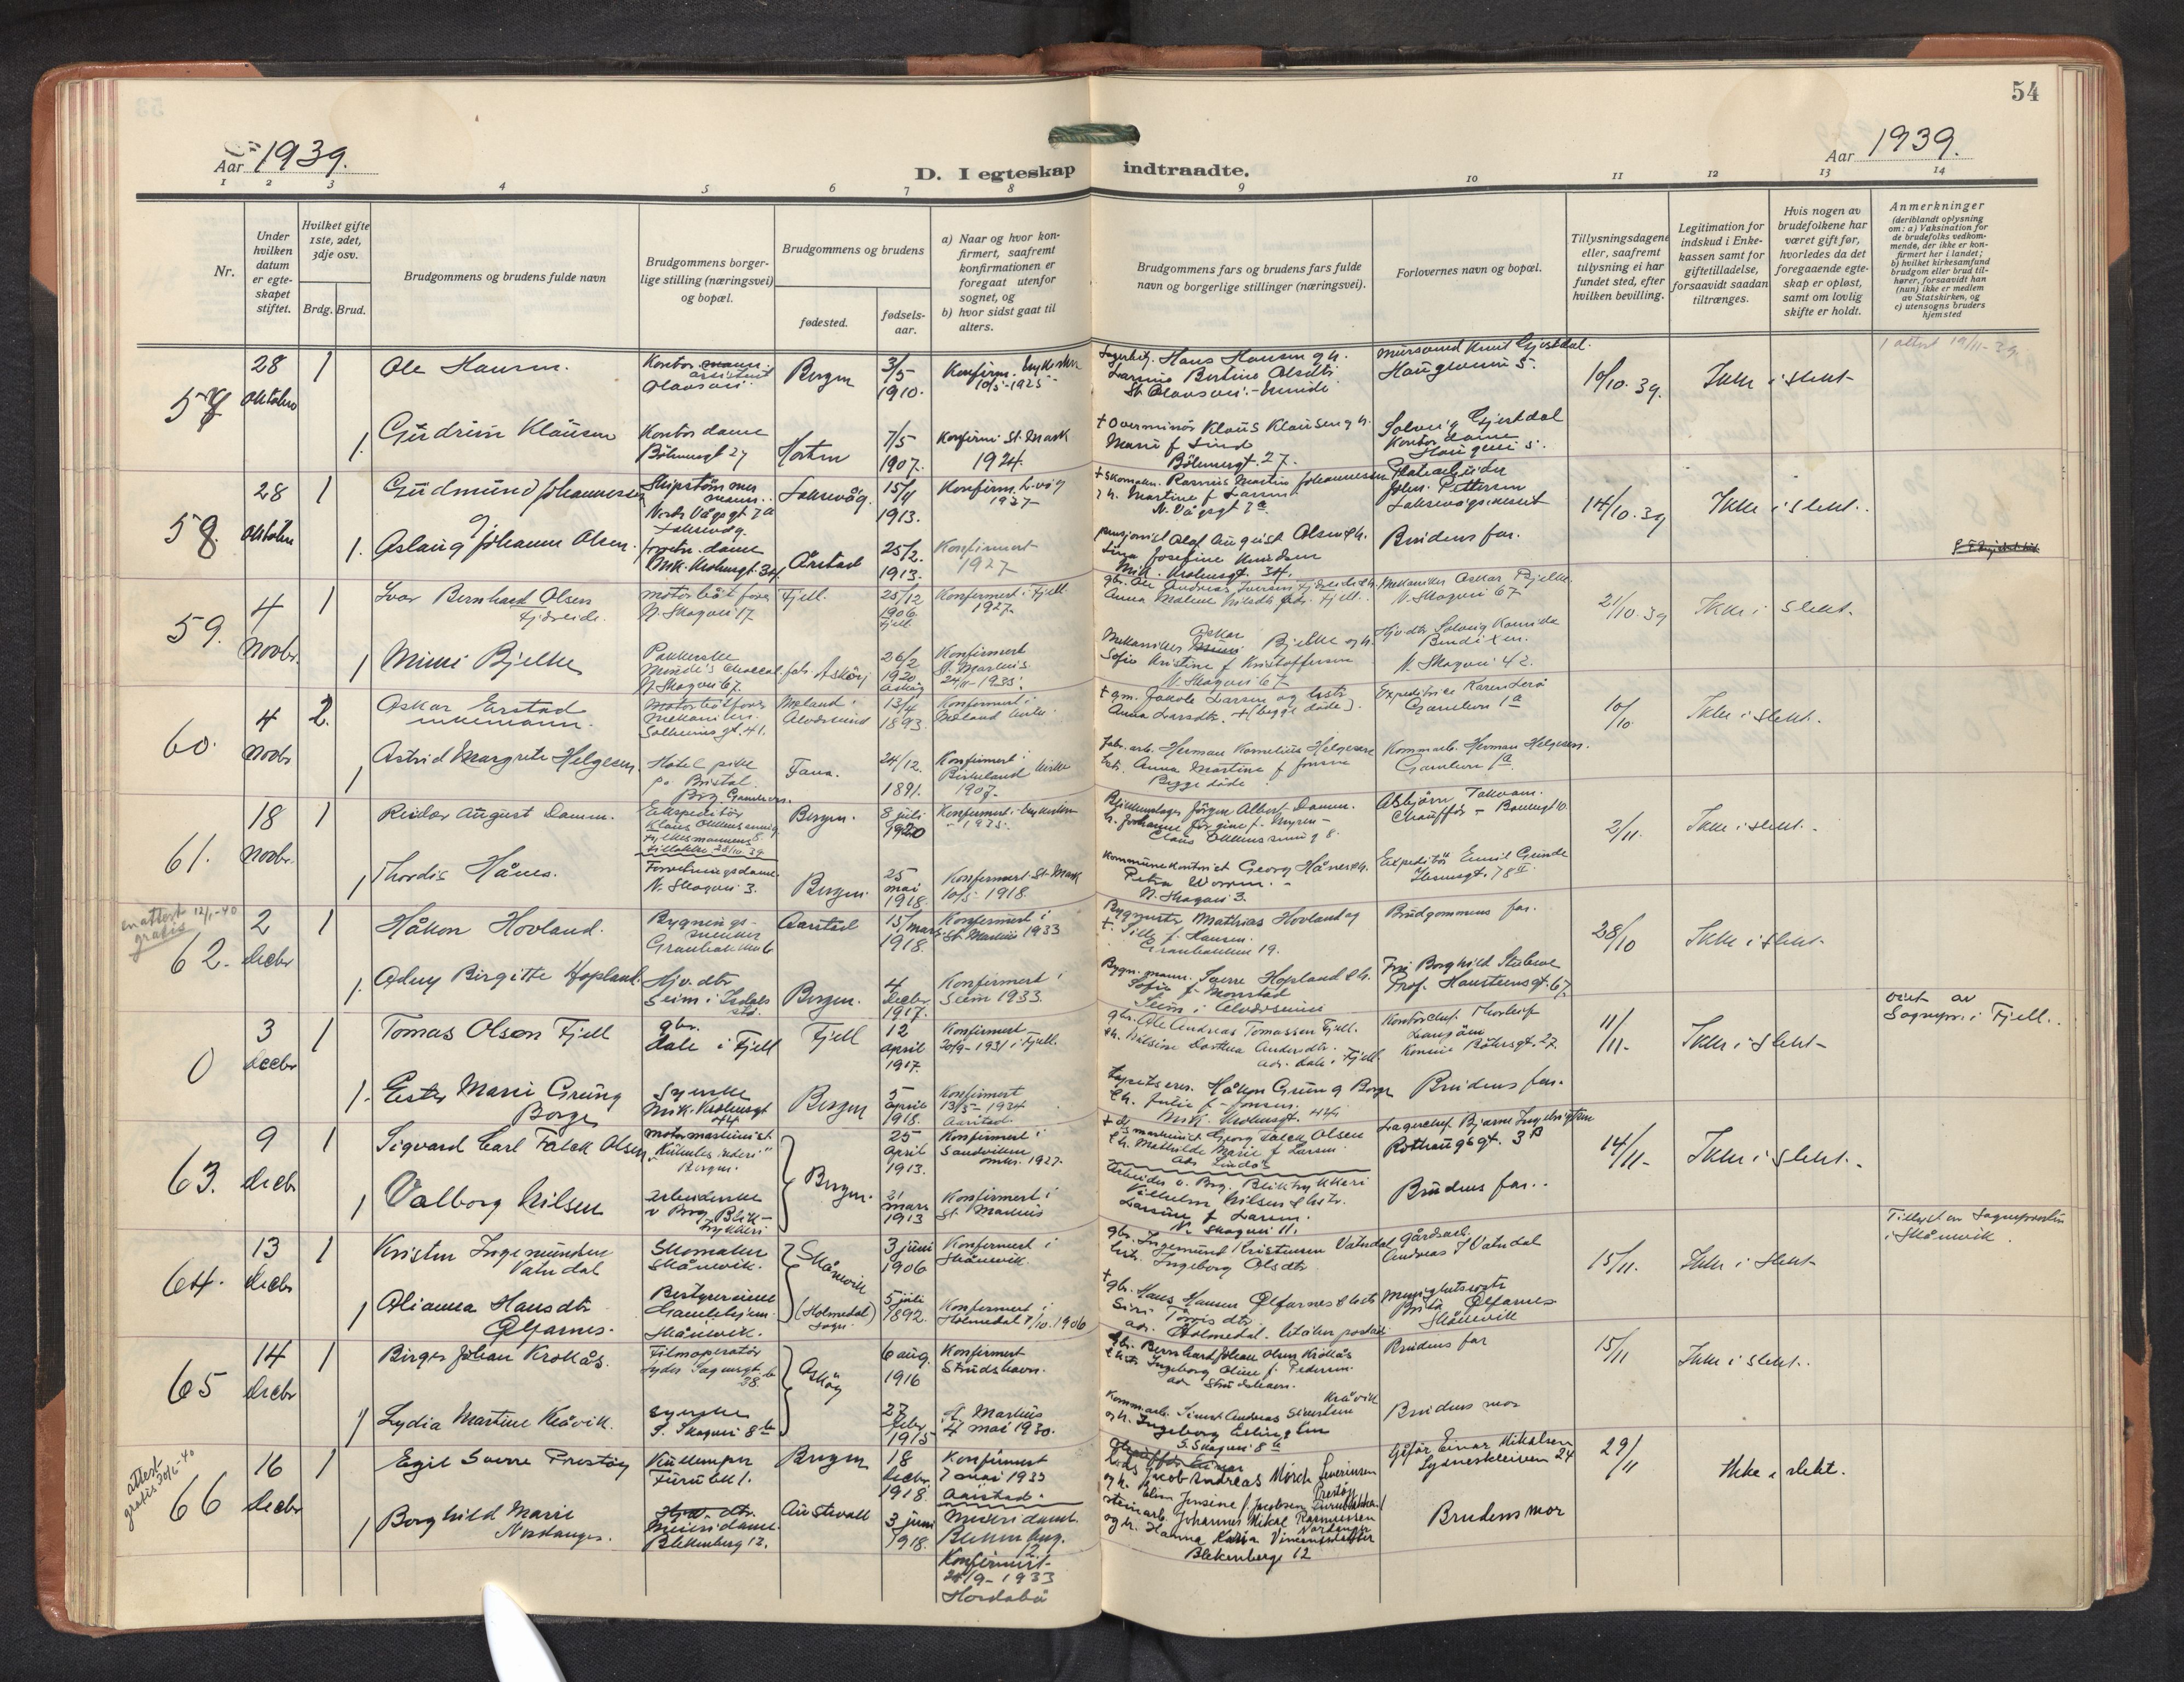 54
Aar 1939.
Aar 1939.
D. I egteskap indtraadte.
1 2 3 4 5 6 7 8 9 10 11 12 13 14
Nr.
Under hvilken datum er egteskapet stiftet.
Hvilket gifte 1ste, 2det, 3dje osv.
Brdg. Brud.
Brudgommens og brudens fulde navn
Brudgommens borgerlige stilling (næringsvei) og bopæl.
Brudgommens og brudens
fødested.
fødselsaar.
a) Naar og hvor konfirmert, saafremt konfirmationen er foregaat utenfor sognet, og
b) hvor sidst gaat til alters.
Brudgommens fars og brudens fars fulde navn og borgerlige stillinger (næringsvei).
Forlovernes navn og bopæl.
Tillysningsdagene eller, saafremt tillysning ei har fundet sted, efter hvilken bevilling.
Legitimation for indskud i Enkekassen samt for giftetilladelse, forsaavidt saadan tiltrænges.
Hvis nogen av brudefolkene har været gift før, hvorledes da det foregaaende egteskap er opløst, samt om lovlig skifte er holdt.
Anmerkninger
(deriblandt oplysning om: a) Vaksination for de brudefolks vedkommende, der ikke er konfirmert her i landet; b) hvilket kirkesamfund brudgom eller brud tilhører, forsaavidt han (hun) ikke er medlem av Statskirken, og c) utensogns bruders hjemsted
57 28 oktober 1 Ole Hansen. Kontor assistent Olavsvei. Bergen 3/5 1910. Konfirm. 10/5-1925 Hans Hansen g.h. Knut Gjestdal. Haugeveien 5. 10/10.39. Ikke i slekt 1 attest 19/11-39.
1. Gudrun Klausen Kontordame Bøhmersgt 27 Horten 7/5 1907. Konfirm St. Mark 1924. + Overminør Klaus Klausen g.h. Marie f Lind Bøhmersgt. 27. Solveig Gjestdal Kontordame Haugevei 5.
58. 28 oktober 1 Gudmund Johannessen Nordre Vågsgt 7a Laksevåg. Laksevåg. 15/11 1913. Konfirm. L.våg 1927 + Skomakm. Rasmus Martin Johannessen g.h. Martine f Larsen N. Vågsgt 7a. Platearbeider Johan Pettersen 14/10.39 Ikke i slekt.
1. Aslaug Johanne Olsen. forretn.dame Mik. Krohnsgt 34. Årstad 25/2. 1913. Konfirmert 1927 Pensjonist Olaf August Olsen g.h. Lina Josefine Knudsen Mik. Krohnsgt. 34. Brudens far.
59. 4 Novbr. 1 Ivar Bernhard Olsen Fjæreide. Motorbåtfører N. Skogvei 17 Fjell. 25/12 1906 Fjell Konfirmert i Fjell 1927. Mekaniker Oskar Bjelke N. Skogvei 67 21/10.39 Ikke i slekt.
1 Mimi Bjelke Pakkerske Minde's Chocol. fab. N. Skogvei 67. Askøy 26/2 1920 Askøy Konfirmert St. Markus. 24/11-1935. Mekaniker Oskar Bjelke og h. Sofie Kristine f Kristoffersen N. Skogvei 67 Hjv.dtr Solveig Kamilde Bendixen. N. Skogvei 42.
60. 4 Novbr 2. Oskar Erstad enkemann. Motorbåtfører Mekaniker. Solheimsgt. 41. Meland i Alversund 13/4 1893. Konfirmert i Meland kirke. + gm. Jakob Larsen og hstr Anna Larsdtr. + (begge døde). Expeditrice Karen Lerø Gamleveien 1a 10/10. Ikke i slekt.
1 Astrid Margrete Helgesen. Hotel pike på Bristol. Fana. 24/12. 1891. Konfirmert i Birkeland kirke 1907. Fabr. arb. Herman Kornelius Helgesen hstr. Anna Martine f Jensen Begge døde Kommarb. Herman Helgesen. Gamleveien 1a
61. 18 Novbr. 1 Reidar August Damm. Ekspeditør Bergen. 8 juli 1920 Konfirmert. 1935. Blikkenslager Jørgen Albert Damm. h. Johanne Jørgine f. Myren Asbjørn Takvam. Chauffør 2/11. Ikke i slekt.
1 Thordis Hånes. Forretningsdame N. Skogvei 3. Bergen 25 mai 1918. Konfirmert. St. Mark 1918. Kommunekontorist Georg Hånes g.h. Petra Worm. N. Skogvei 3. Expeditør Emil Grinde 78 II.
en attest 12/1-40 gratis
62. 2 Decbr 1 Håkon Hovland. Bygningssnekker Granbakken 6 Aarstad 15/mars 1918. Konfirmert i St. Markus 1933 Bygmester Mathias Hovland og +. Sille f. Hansen. Granbakken 19. Brudgommens far. 28/10 Ikke i slekt.
1. Odny Birgitte Hopland. Hjv. dtr Seim i Isdalstø. Bergen. 4 Decbr. 1917. Konfirmert i Seim 1933. Bygn. mann. Sverre Hopland & h. Sofie f- Monstad Seim i Alversund Frk Borghild Prof. Hansteensgt. 67.
0 3 Decbr 1 Tomas Olsen Fjell gbr. Dale i Fjell Fjell 12 april 1917. Konfirmert 20/9-1931 i Fjell. gbr. Ole Andreas Tomassen Fjell. & h. Nilsine Dorthea Andersdtr. adr. Dale i Fjell. 11/11- Ikke i slekt. viet av Sognepr. i Fjell.
1. Ester Marie Grung Borge Syerske Mik. Krohnsgt 44 Bergen 5 april 1918. Konfirmert 13/5-1934 Aarstad. Tapetserer. Håkon Grung Borge & h. Julie f- Jonsen. Mik. Krohnsgt. 44. Brudens far.
63. 9 Decbr 1 Sigvard Carl Falck Olsen Motormaskinist Bergen. Bergen. 25 april 1913. Konfirmert i Sandviken 1927. maskinist Georg Falck Olsen & h. Mathilde Marie f Larsen. Adr Lindås Lagerchef. Bjarne Ingebrigtsen Rothaugsgt. 3B 14/11- Ikke i slekt.
1 Valborg Nilsen Arbeiderske v Brg. Bliktrykkeri 21 mars 1913 Konfirmert i St. Markus Arbeider v. Brg. Bliktrykkeri Vilhelm Nilsen & hstr. Larsine f Larsen. N. Skogvei 11. Brudens far..
64. 13 Decbr 1 Kristen Ingemundsen Vatndal Skomaker Skånevik. Skånevik 3 juni 1906 Konfirmert i Skånevik. gbr. Ingemund Kristensen Vatndal hstr. Ingeborg Olsdtr Gårdsarb. Andreas J Vatndal 15/11. Ikke i slekt Tillyst av Sognepresten i Skånevik.
1 Olianna Hansdtr Ølfarnes. Bestyrerinne Gamlehjem. Skånevik. (Holmedal) sogn. 5 juli 1892. Konfirmert i Holmedal /10.1906 + gbr. Hans Hansen Ølfarnes & hstr Siri Tomisdtr adr. Holmedal. Ølfarnes Skånevik
65 14 Decbr 1 Birger Johan Krokås. Filmoperatør Lyder Sagensgt. 28. Askøy 6 aug. 1916 Konfirmert Strudshavn. gbr. Bernhard Johan Olsen Krokås & hstr Ingeborg Oline f. Pedersen. adr Strudshavn. Brudens far 15/11 Ikke i slekt.
1 Lydia Martine Kråvik. Syerske S. Skogvei 8b 27 Febr. 1915 St. Markus 4 mai 1930. Kommarb. Simon Andreas Simonsen Kråvik og h. Ingeborg S. Skogvei 8b Brudens mor
attest gratis 20/6-40
66 16 Decbr 1 Egil Sverre Prestøy Furubk 1. Bergen 18 Decbr. 1918. Konfirmert 7 mai 1933 Aarstad. Lods Jacob Andreas Mørch Severinsen Prestøy og h. Elen Jensine f. Jacobsen Furubakken 1 Einar Mikalsen Lyderskleiven 24 29/11 Ikke i slekt.
1 Borghild Marie Nordanger. Hjv. dtr. Meieridame. Blekenberg 12. Austevoll 3 juni 1918. Meieridame. Konfirmert 24/9-1933 Hordabø Steinarb. Johannes Mikal Rasmussen Nordanger og h. Hanna Karia Vincensdatter Blekenberg 12 Brudens mor